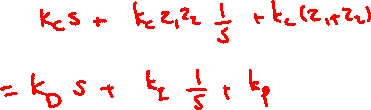 k_c s + k_c z_1 z_2 1/s + k_c (z_1 + z_2)
= k_D s + k_I 1/s + k_p